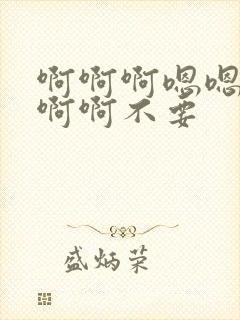 啊啊啊嗯嗯
啊啊不要
盛炳荣